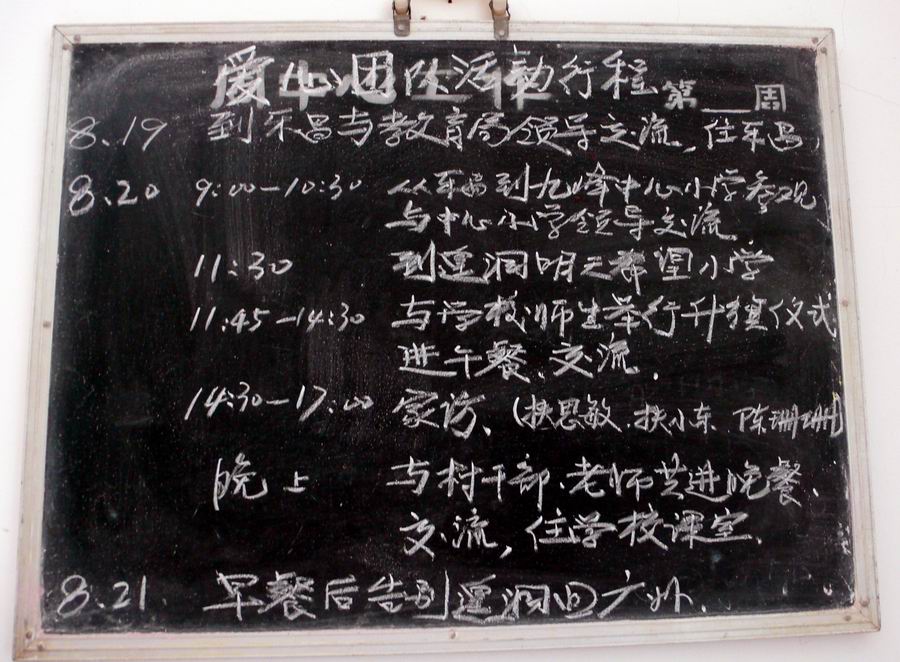 爱心团队活动行程 第__周
8.19 到乐昌与教育局领导交流,住乐昌,
8.20 9:00-10:30 从乐昌到九峰中心小学参观
与中心小学领导交流.
11:30 到遥洞明天希望小学
11:45-14:30 与学校师生举行升旗仪式
进午餐、交流.
14:30-17:00 家访、(扶思敏、扶小东 陈珊珊)
晚上 与村干部、老师共进晚餐、
交流,住学校课室.
8.21 早餐后告别遥洞回广州.